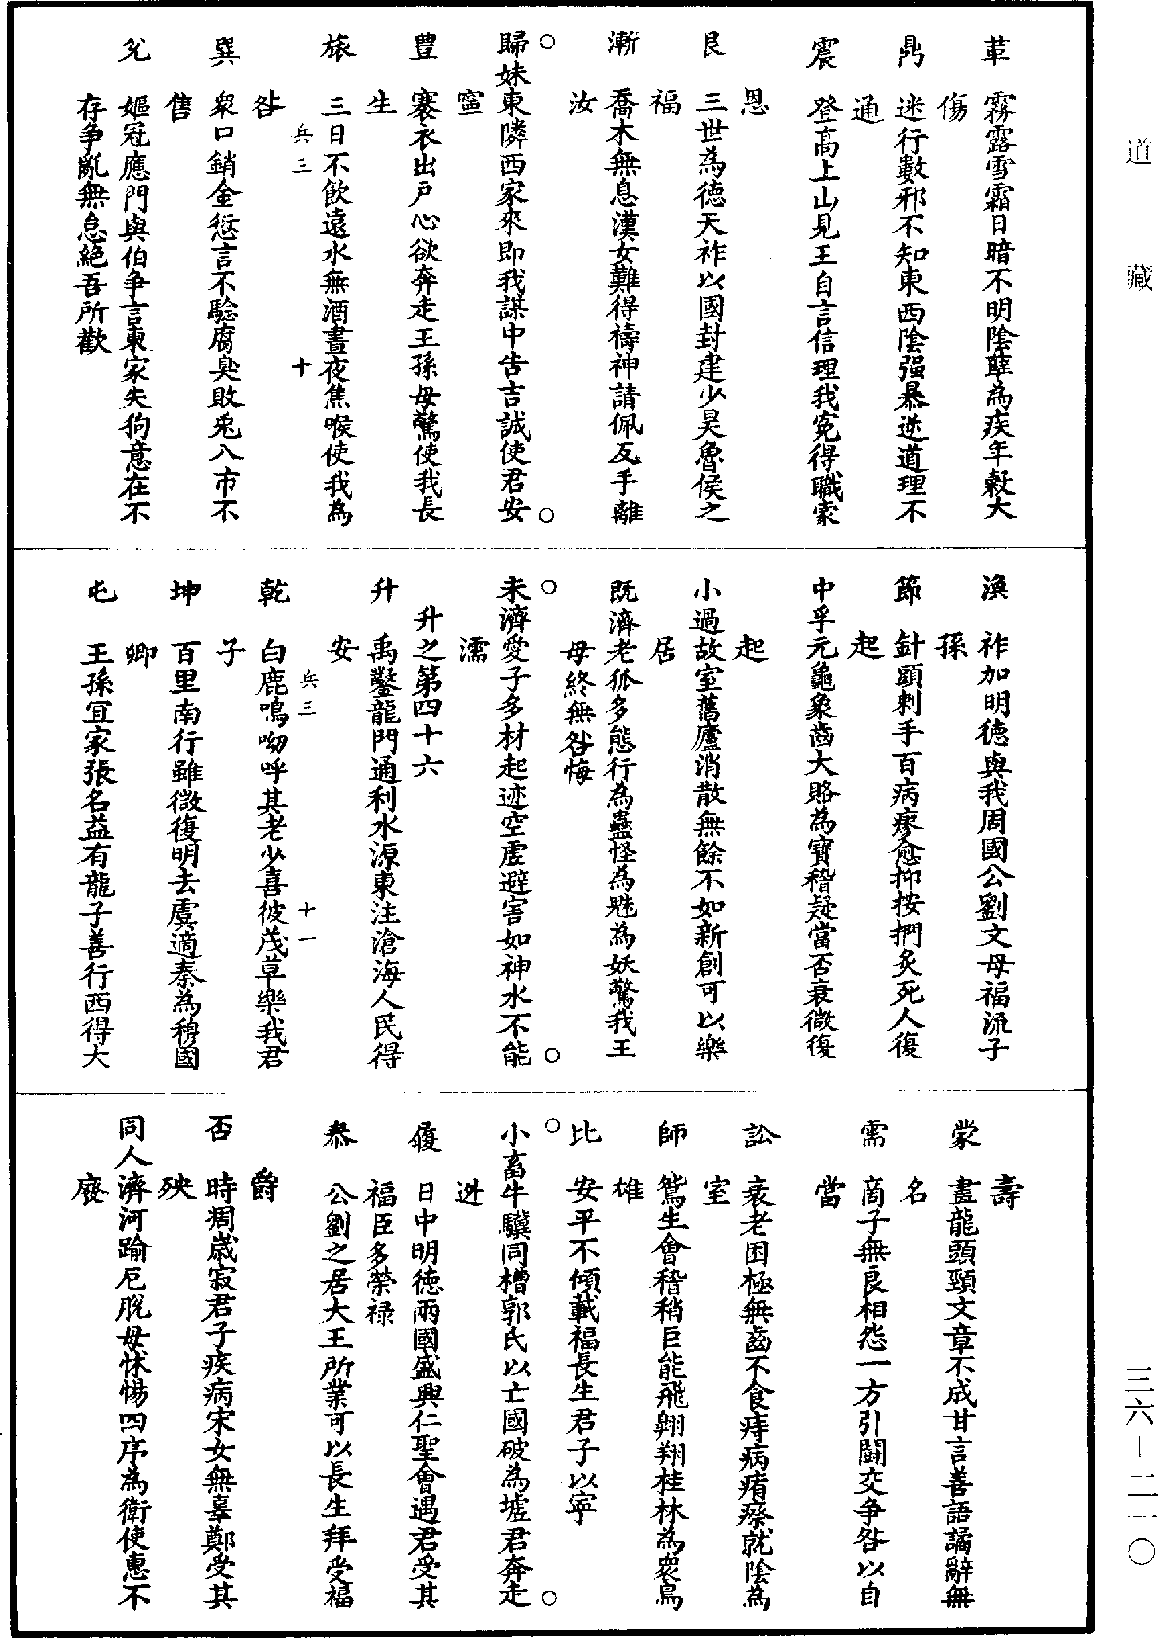 革　霧露雪霜日暗不明陰孽為疾年穀大
傷
鼎　迷行數邪不知東西陰强暴逆道理不
通
震　登高上山見王自言信理我寃得職蒙
恩
艮　三世為德天祚以國封建少昊魯侯之
福
漸　喬木無息漢女難得禱神請佩反手離
汝
歸妹東隣西家來即我謀中告吉誠使君安
寧
豊　褰衣出戶心欲奔走王孫母驚使我長
生
旅　三日不飲遠水無酒晝夜焦喉使我為
咎
兵三　十
巽　衆口銷金愆言不驗腐臭敗兎入市不
售
兌　嫗冠應門與伯争言東家失狗意在不
存争亂無怠絕吾所歡
渙　祚加明德與我周國公劉文母福流子
孫
節　針頭刺手百病瘳愈抑按捫炙死人復
起
中孚元龜象齒大賂為寶稽疑當否衰微復
起
小過故室舊廬消散無餘不如新創可以樂
居
既濟老狐多態行為蠱怪為魅為妖驚我王
母終無咎悔
未濟愛子多材起迹空虛避害如神水不能
濡
升之第四十六
升　禹鑿龍門通利水源東注滄海人民得
安
兵三　十一
乾　白鹿鳴呦呼其老少喜彼茂草樂我君
子
坤　百里南行雖微復明去虞適秦為穆國
卿
屯　王孫宜家張名益有龍子善行西得大
壽
蒙　畫龍頭頸文章不成甘言善語譎辭無
名
需　商子無良相怨一方引鬪交争咎以自
當
訟　衰老困極無齒不食痔病痟瘵就陰為
室
師　鴛生會稽稍巨能飛翱翔桂林為衆鳥
雄
比　安平不傾載福長生君子以寧
小畜牛驥同槽郭氏以亡國破為墟君奔走
迯
履　日中明德兩國盛興仁聖會遇君受其
福臣多榮禄
泰　公劉之居大王所業可以長生拜受福
爵
否　時凋歲寂君子疾病宋女無辜鄭受其
殃
同人濟河踰厄脫母怵惕四序為衛使惠不
廢
道藏
三六—二一〇